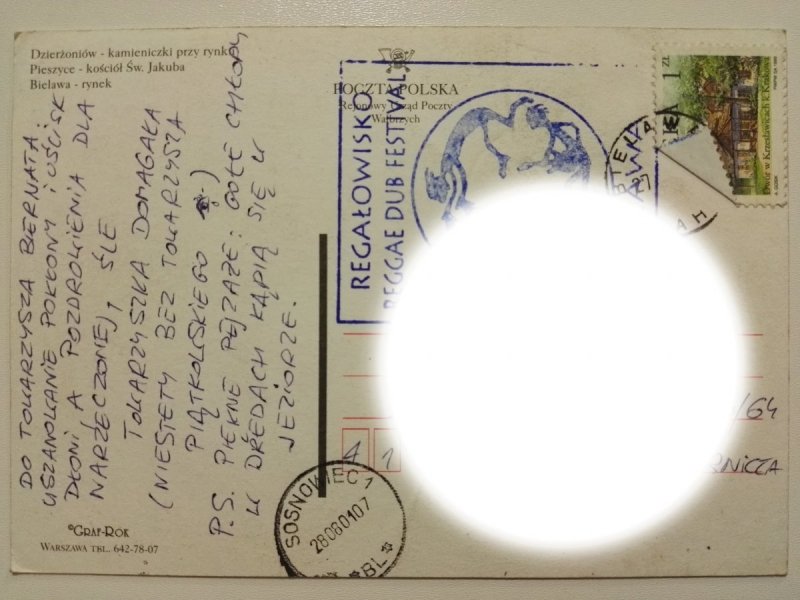 Dzierżoniów - kamieniczki przy rynku
Pieszyce - kościół Św. Jakuba
Bielawa - rynek
POCZTA POLSKA
Rejonowy Urząd Poczty
Wałbrzych
REGAŁOWISKO
REGGAE DUB FESTIVAL
1 ZŁ
DO TOWARZYSZA BIERNATA:
USZANOWANIE POKŁONY I UŚCISK
DŁONI A POZDROWIENIA DLA
NARZECZONEJ, ŚLE
TOWARZYSZKA DOMAGAŁA
(NIESTETY BEZ TOWARZYSZA
PIĄTKOWSKIEGO)
P.S. PIĘKNE PEJZAŻE: GOŁE CHŁOPY
W DREDACH KĄPIĄ SIĘ W
JEZIORZE.
/64
4 1
RNICZA
SOSNOWIEC 1
28.08.01.07
©GRAF-RÓK
WARSZAWA TBL. 642-78-07